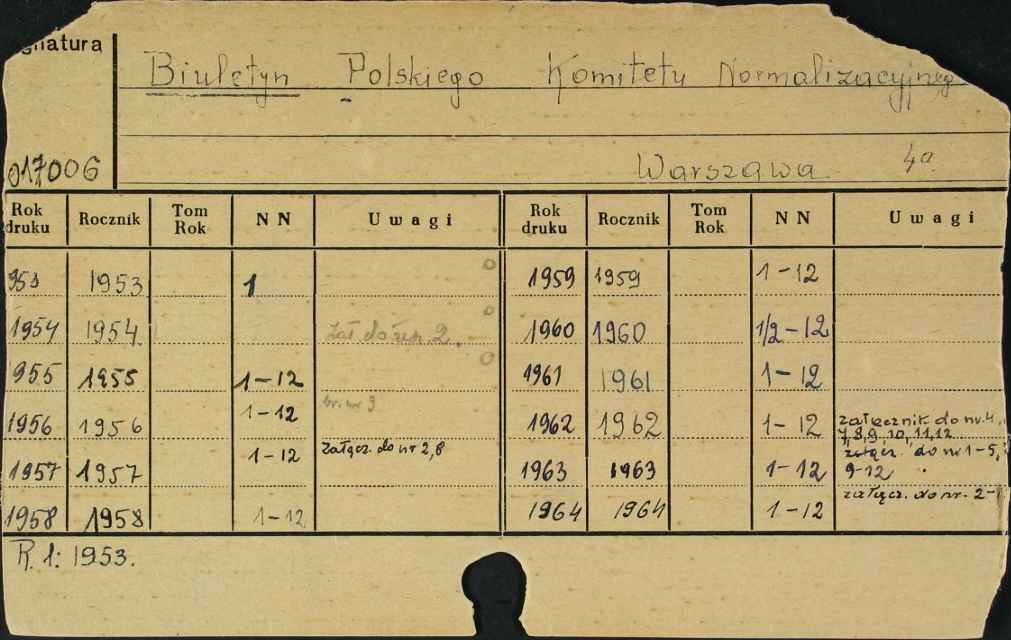 gnatura
Biuletyn Polskiego Komitetu Normalizacyjneg
017006 Warszawa 4a
Rok druku Rocznik Tom Rok NN Uwagi Rok druku Rocznik Tom Rok NN Uwagi
953 1953 1 1959 1959 1-12
1954 1954 2. 1960 1960 1/2-12
955 1955 1-12 1961 1961 1-12
1956 1956 1-12 br. nr 9 1962 1962 1-12 załącznik do nr. 4, 7, 8, 9, 10, 11, 12
1957 1957 1-12 załącz. do nr 2,8 1963 1963 1-12 załącz. do nr 1-5, 9-12
1958 1958 1-12 1964 1964 1-12 załącz. do nr. 2-
R. 1: 1953.